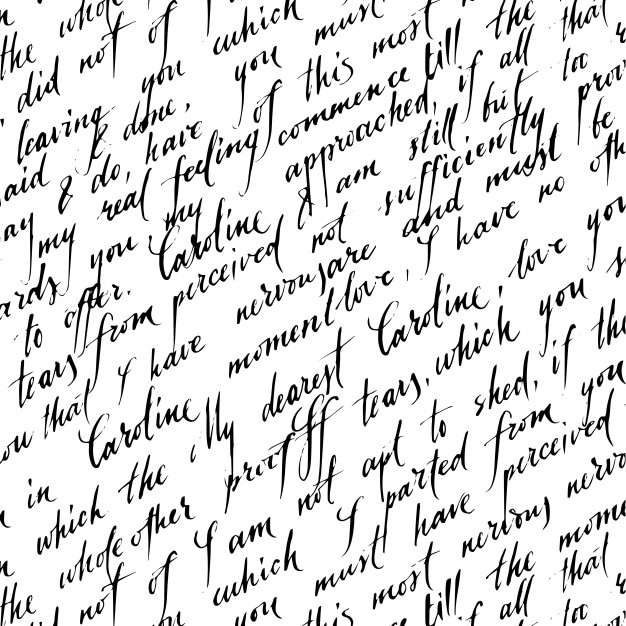 the whole
did not of
leaving you which
said & done, you must
& do, have of this most
my real feeling commence till the
you my approached, if all that
to offer. Caroline & am still but too
tears from perceived not sufficiently
that I have nervous are and must be
in Caroline moment love, I have no
which the My dearest Caroline, love you
the whole other proof tears, which you
did not of I am not apt to shed, if the
you which I parted from you
you must have perceived
this most nervous
till the
if all that
too